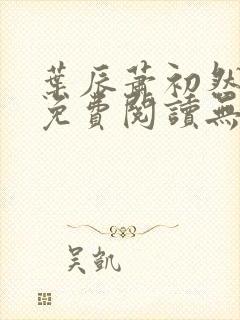 葉辰蕭初然
免費閱讀無
吴凱